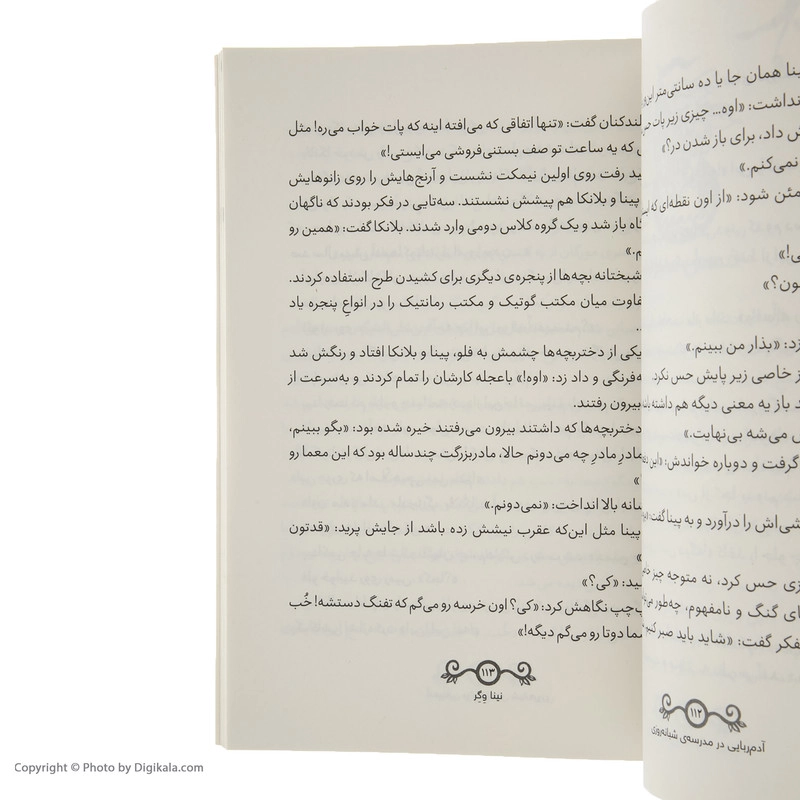 ینا همان جا یا ده سانتی‌متر این‌ور
نداشت: «اوه... چیزی زیر پات
ش داد، برای باز شدن در؟»
نمی‌کنم.»
مئن شود: «از اون نقطه‌ای که
ی!»
ون؟»
زد: «بذار من ببینم.»
ز خاصی زیر پایش حس نکرد.
د باز یه معنی دیگه هم داشته
ش می‌شه بی‌نهایت.»
گرفت و دوباره خواندش: «این
شی‌اش را درآورد و به پینا گفت:
زی حس کرد، نه متوجه چیز
ای گنگ و نامفهوم، چه‌طور
فکر گفت: «شاید باید صبر کنیم
۱۱۲
آدم‌ربایی در مدرسه‌ی شبانه‌روزی
لندکنان گفت: «تنها اتفاقی که می‌افته اینه که پات خواب می‌ره! مثل
ی که یه ساعت تو صف بستنی‌فروشی می‌ایستی!»
ید رفت روی اولین نیمکت نشست و آرنج‌هایش را روی زانوهایش
پینا و بلانکا هم پیشش نشستند. سه‌تایی در فکر بودند که ناگهان
گاه باز شد و یک گروه کلاس دومی وارد شدند. بلانکا گفت: «همین رو
م.»
شبختانه بچه‌ها از پنجره‌ی دیگری برای کشیدن طرح استفاده کردند.
فاوت میان مکتب گوتیک و مکتب رمانتیک را در انواعِ پنجره یاد
.
یکی از دختربچه‌ها چشمش به فلو، پینا و بلانکا افتاد و رنگش شد
ه‌فرنگی و داد زد: «اوه!» باعجله کارشان را تمام کردند و به‌سرعت از
بیرون رفتند.
دختربچه‌ها که داشتند بیرون می‌رفتند خیره شده بود: «بگو ببینم،
مادرِ مادرِ چه می‌دونم حالا، مادربزرگت چندساله بود که این معما رو
»
شانه بالا انداخت: «نمی‌دونم.»
پینا مثل این‌که عقرب نیشش زده باشد از جایش پرید: «قدتون
»
ید: «کی؟»
چپ‌چپ نگاهش کرد: «کی؟ اون خرسه رو می‌گم که تفنگ دستشه! خُب
شما دوتا رو می‌گم دیگه!»
۱۱۳
نینا وِگِر
Copyright © Photo by Digikala.com